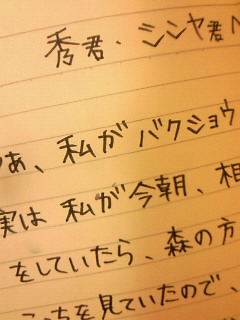 秀君、シンヤ君へ
あ、私がバクショウ
実は私が今朝、相
をしていたら、森の方
ちを見ていたので、